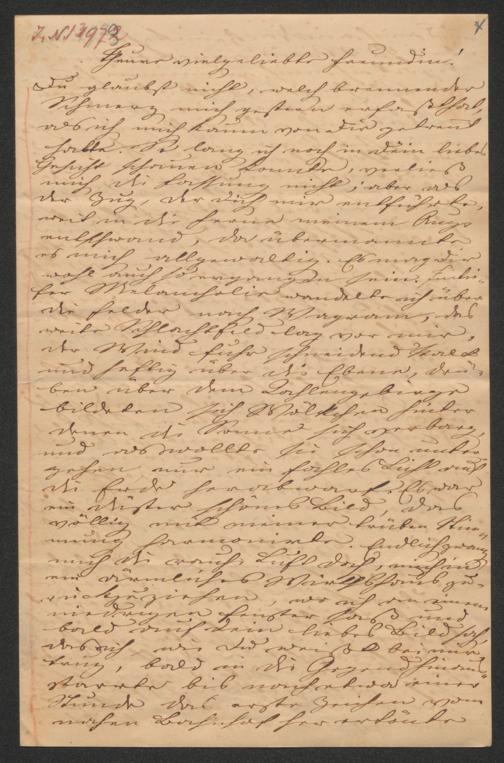 I. N. 13978
x
Theure vielgeliebte Freundin!
Du glaubst nicht, welch brennender
Schmerz mich gestern erfaßt hat,
als ich mich kaum von Dir getrennt
hatte. So lang ich noch in Dein liebes
Gesicht schauen konnte, verließ
mich die Fassung nicht; aber als
der Zug, der Dich mir entführte,
weit in die Ferne meinem Auge
entschwand, da übermannte
es mich allgewaltig. Es mag Dir
wohl auch so ergangen sein. In tie-
fer Melancholie wandelte ich über
die Felder nach Wagram, das
weite Schlachtfeld lag vor mir,
der Wind fuhr schneidend kalt
und heftig über die Ebene, drü-
ben über dem Kahlengebirge
bildeten sich Wölkchen hinter
denen die Sonne sich verbarg
und als wollte sie schon unter
gehen nur ein fahles Licht auf
die Erde herabwarf. Es war
ein düster schönes Bild, das
völlig mit meiner trüben Stim-
mung harmonirte. Endlich zwang
mich die rauhe Luft doch, mich in
ein ärmliches Wirthshaus zu-
rückzuziehen, wo ich an einem
niedrigen Fenster saß und
bald auf Dein liebes Bild sah,
das ich, wie Du weißt bei mir
trug, bald in die Gegend hinaus-
starrte bis nach etwa einer
Stunde das erste Zeichen vom
nahen Bahnhof her ertönte